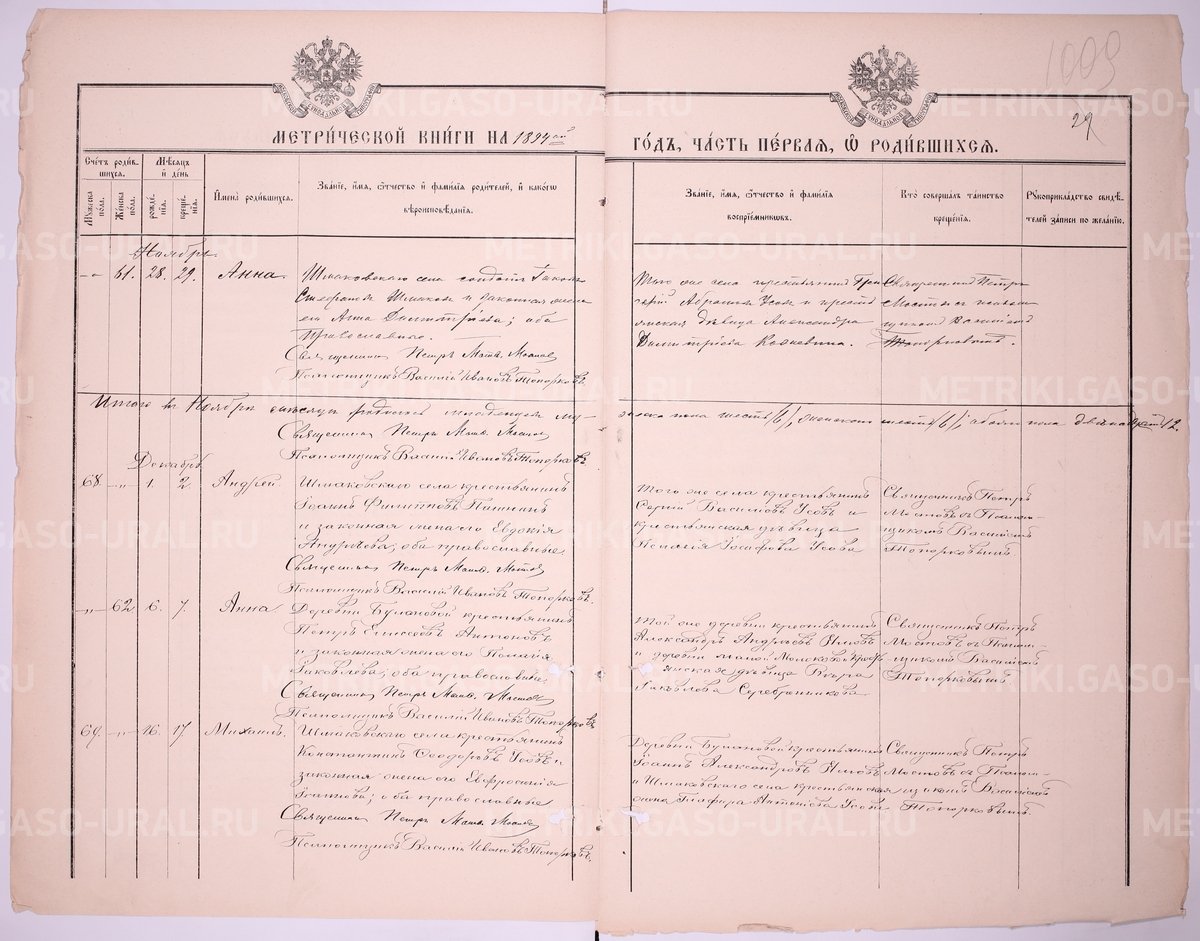 1009
29
МЕТРИЧЕСКОЙ КНИГИ НА 1894ый
ГОДЪ, ЧАСТЬ ПЕРВАЯ, Ѡ РОДИВШИХСЯ.
Счетъ родившихся.
Мужеска пола.
Женска пола.
Мѣсяцъ и день
рожденія.
крещенія.
Имена родившихся.
Званіе, имя, отчество и фамилія родителей, и какого
вѣроисповѣданія.
Званіе, имя, отчество и фамилія
воспріемниковъ.
Кто совершалъ таинство
крещенія.
Рукоприкладство свидѣтелей записи по желанію.
Ноябрь
61. 28. 29. Анна
Шмаковскаго села солдатъ Іаковъ
Стефановъ Шмаковъ и законная жена
его Анна Димитріева; оба
православные.
Священникъ Петръ Мостовъ
Псаломщикъ Василій Ивановъ Топорковъ
Того же села крестьянинъ
Абрамовъ Усовъ и кресть-
янская дѣвица Александра
Димитріева
Священникъ Петръ
Мостовъ съ псалом-
щикомъ Василіемъ
Топорковымъ.
Итого въ Ноябрѣ мѣсяцѣ родилось младенцевъ му-
жеска пола шесть /6/, женска шесть /6/, а обоего пола двѣнадцать 12.
Священникъ Петръ Мостовъ
Псаломщикъ Василій Ивановъ Топорковъ
Декабрь
68 — 1. 2. Андрей
Шмаковскаго села крестьянинъ
Іоаннъ Филипповъ
и законная жена его Евдокія
Андреева; оба православные
Священникъ Петръ Мостовъ
Псаломщикъ Василій Ивановъ Топорковъ.
Того же села крестьянинъ
Сергій Васильевъ Усовъ и
крестьянская дѣвица
Іосафова Усова
Священникъ Петръ
Мостовъ съ Псалом-
щикомъ Василіемъ
Топорковымъ
— 62 6. 7. Анна
Деревни Булановой крестьянинъ
Петръ Елисеевъ Антоновъ
и законная жена его Пелагія
Іаковлева; оба православные
Священникъ Петръ Мостовъ
Псаломщикъ Василій Ивановъ Топорковъ
Той же деревни крестьянинъ
Александръ Андреевъ
и деревни Малой кресть-
янская дѣвица Вѣра
Іаковлева Серебрянникова
Священникъ Петръ
Мостовъ съ Псалом-
щикомъ Василіемъ
Топорковымъ
69. — 16. 17. Михаилъ.
Шмаковскаго села крестьянинъ
Константинъ Ѳеодоровъ Усовъ и
законная жена его Евфросинія
оба православные
Священникъ Петръ Мостовъ
Псаломщикъ Василій Ивановъ Топорковъ.
Деревни Булановой крестьянинъ
Іоаннъ Александровъ
и Шмаковскаго села крестьянская
жена Глафира Антонова Усова
Священникъ Петръ
Мостовъ съ Псалом-
щикомъ Василіемъ
Топорковымъ.
METRIKI.GASO-URAL.RU